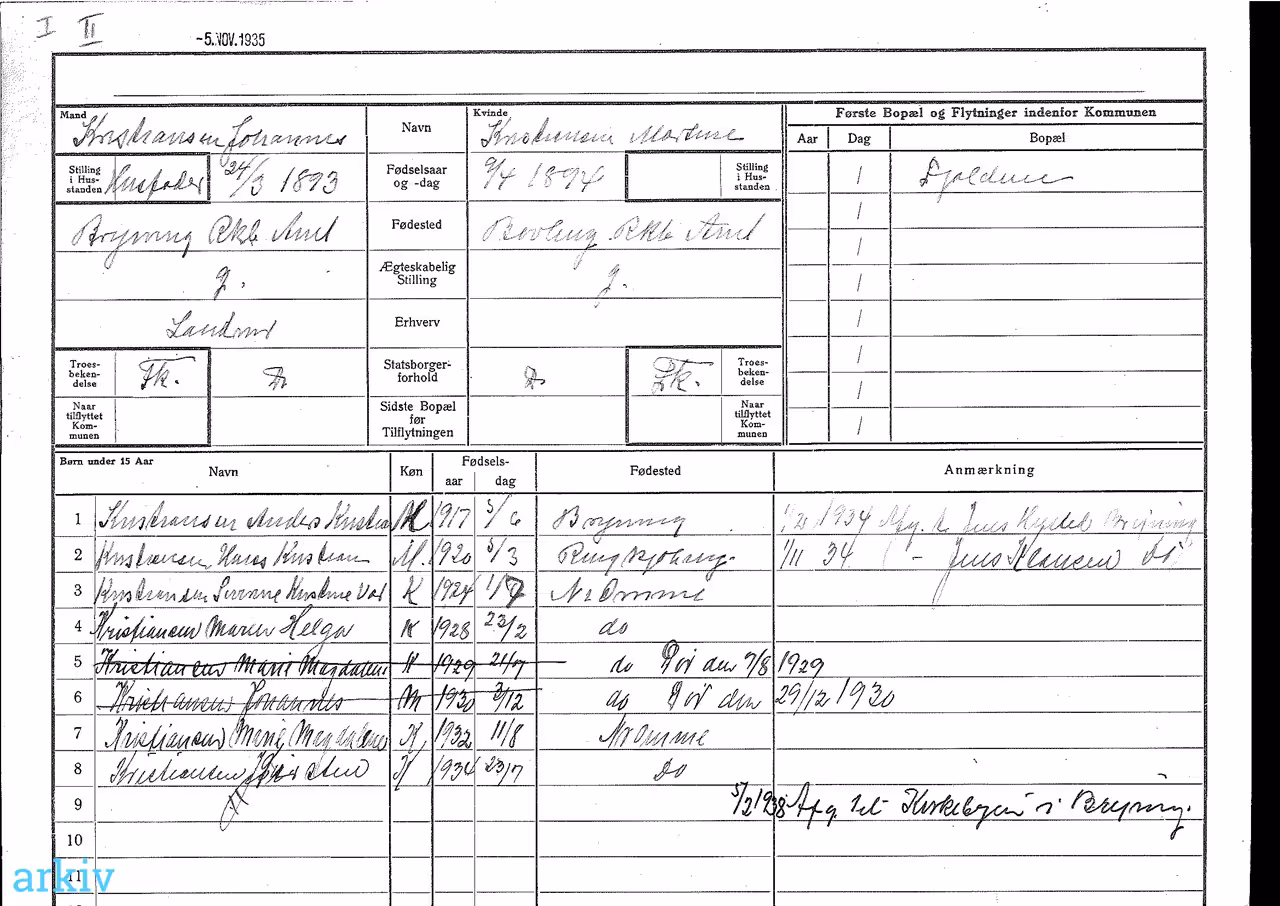 I II
-5. NOV. 1935
Mand
Kristiansen Johannes
Navn
Kvinde
Kristiansen Martine
Første Bopæl og Flytninger indenfor Kommunen
Aar Dag Bopæl
Stilling i Hus-standen Husfader 24/3 1893
Fødselsaar og -dag
9/4 1894
Stilling i Hus-standen
/
Bryning Rkb Amt
Fødested
Bøvling Rkb Amt
/
/
g.
Ægteskabelig Stilling
g.
/
Landmd
Erhverv
/
Troes-beken-delse Fk. D
Statsborger-forhold
D Fk. Troes-beken-delse
/
/
Naar tilflyttet Kom-munen
Sidste Bopæl før Tilflytningen
Naar tilflyttet Kom-munen
/
Børn under 15 Aar
Navn Køn Fødsels- aar dag Fødested Anmærkning
1 Kristiansen Anders M 1917 5/6 Bryning 1/2 1934 Afg. t. Jens Brejning
2 Kristiansen Hans Kristian M. 1920 5/3 Ringkjøbing. 1/11 34 - Jens Klausen Do
3 Kristiansen Kristine K 1924 Nr Omme
4 Kristiansen Maren Helga K 1928 23/2 do
5 Kristiansen Marie Magdalene K 1929 21/7 do Død den 7/8 1929
6 Kristiansen Johannes M 1930 3/12 do Død den 29/12 1930
7 Kristiansen Marie Magdalene K 1932 11/8 Nr Omme
8 Kristiansen Kirsten K 1934 23/7 Do
9 5/2 1938 Afg. til Kirkebyen i Bryning.
10
11
arkiv